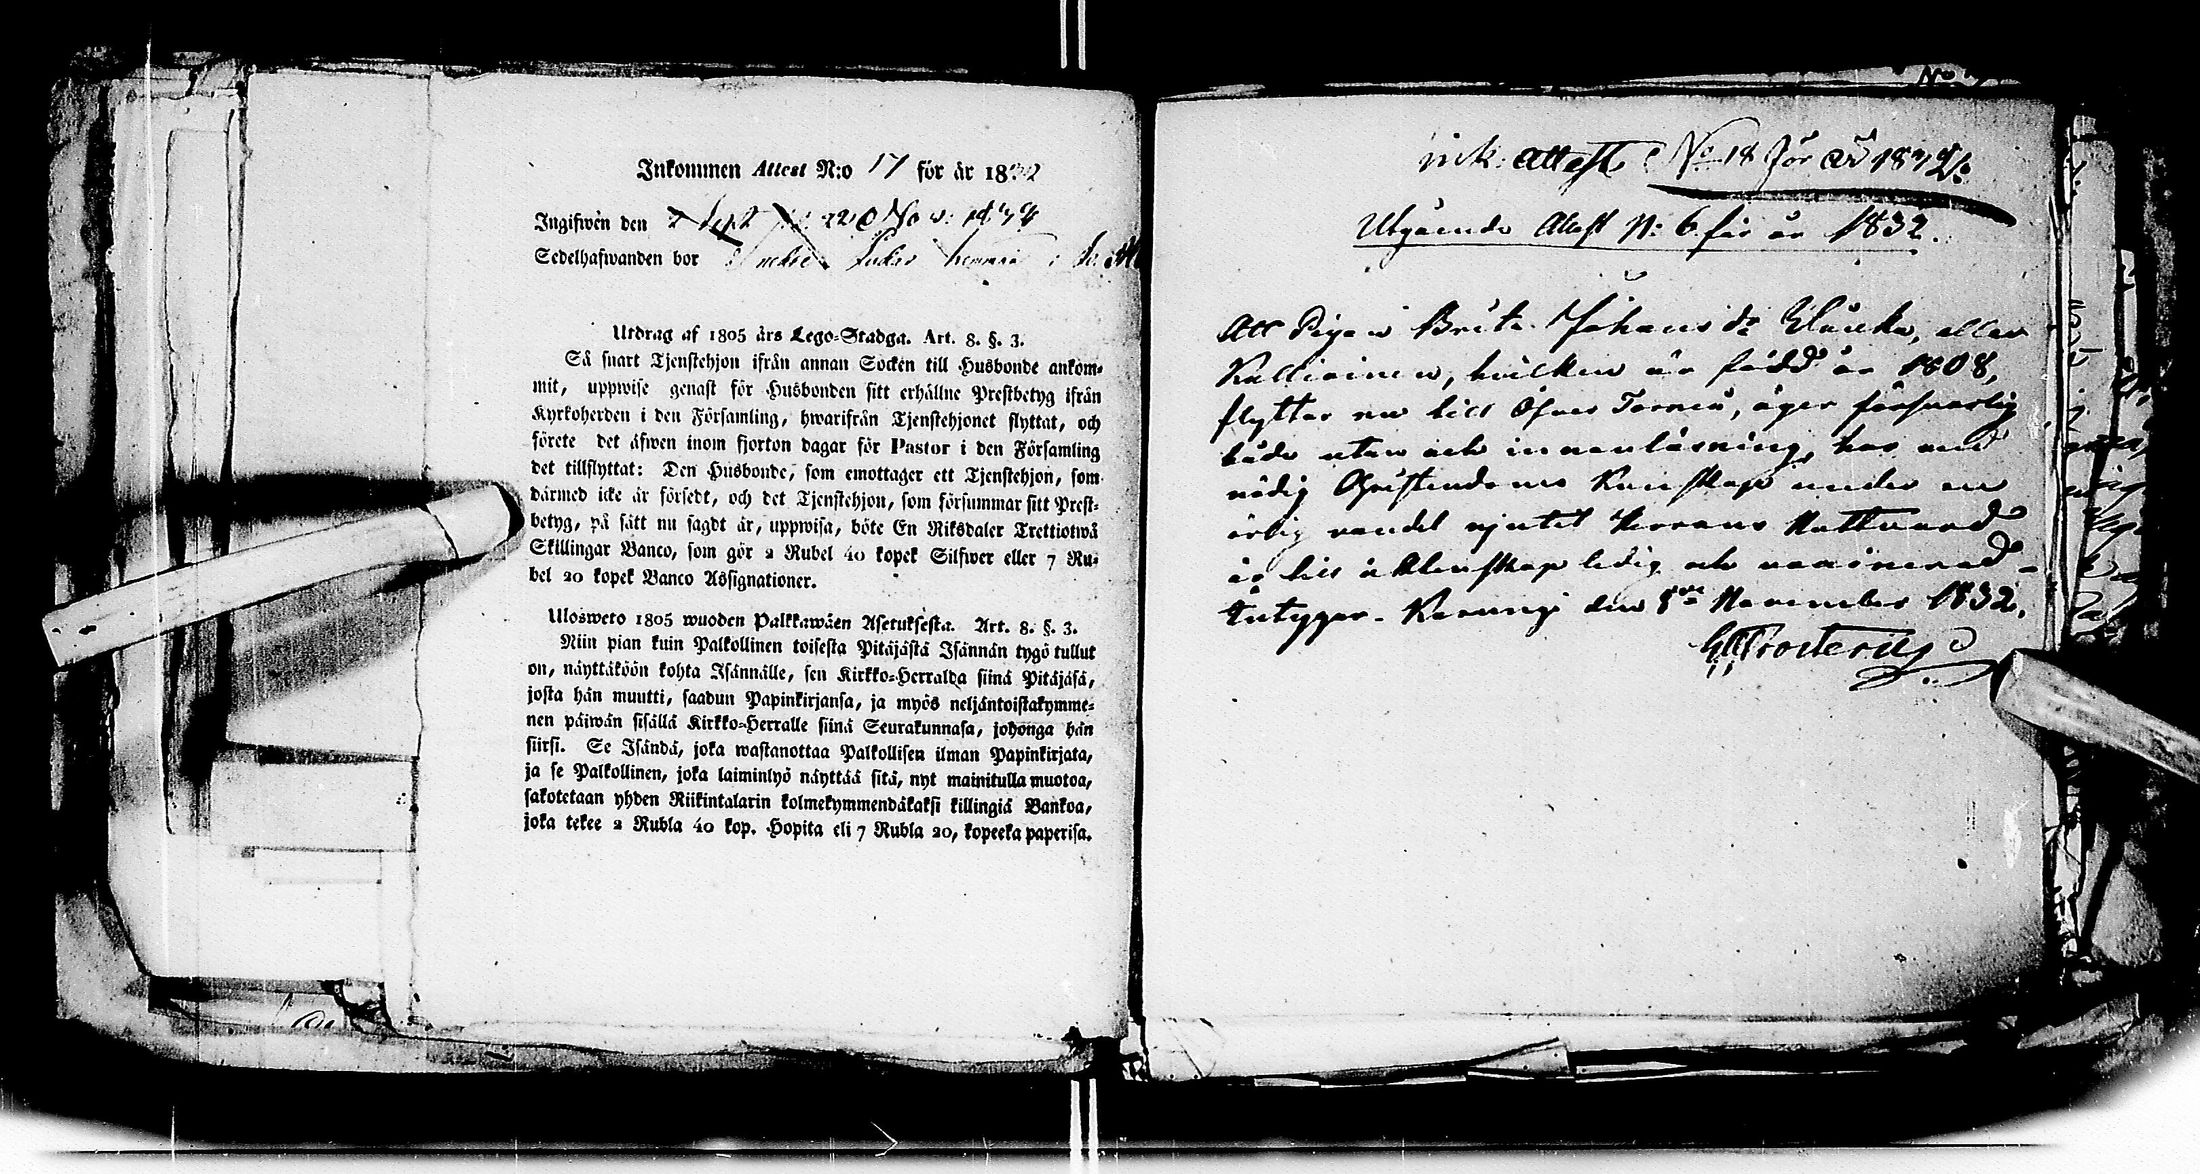 Inkommen Attest N:o 17 för år 1832
Ingifwen den 22 Nov: 1832
Sedelhafwanden bor
Utdrag af 1805 års Lego-Stadga. Art. 8. §. 3.
Så snart Tjenstehjon ifrån annan Socken till Husbonde ankom-
mit, uppwise genast för Husbonden sitt erhållne Prestbetyg ifrån
Kyrkoherden i den Församling, hwarifrån Tjenstehjonet flyttat, och
förete det äfwen inom fjorton dagar för Pastor i den Församling
det tillflyttat: Den Husbonde, som emottager ett Tjenstehjon, som
därmed icke är försedt, och det Tjenstehjon, som försummar sitt Prest-
betyg, på sätt nu sagdt är, uppwisa, böte En Riksdaler Trettiotwå
Skillingar Banco, som gör 2 Rubel 40 kopek Silfwer eller 7 Ru-
bel 20 kopek Banco Assignationer.
Ulosweto 1805 wuoden Palkkawäen Asetuksesta. Art. 8. §. 3.
Niin pian kuin Palkollinen toisesta Pitäjästä Isännän tygö tullut
on, näyttäköön kohta Isännälle, sen Kirkko-Herralda siinä Pitäjäsä,
josta hän muutti, saadun Papinkirjansa, ja myös neljäntoistakymme-
nen päiwän sisällä Kirkko-Herralle siinä Seurakunnasa, johonga hän
siirsi. Se Isändä, joka wastanottaa Palkollisen ilman Papinkirjata,
ja se Palkollinen, joka laiminlyö näyttää sitä, nyt mainitulla muotoa,
sakotetaan yhden Riikintalarin kolmekymmendäkaksi killingiä Bankoa,
joka tekee 2 Rubla 40 kop. Hopita eli 7 Rubla 20, kopeeka paperisa.
ink: Attest No 18 för år 1832.
Utgående Attest N: 6 för år 1832.
Att Pigan Brita Johans dr eller
Kallioinen, hvilken är född år 1808,
flyttar nu till Öfver Torneå, äger försvarlig
både utan och innanläsning, har med
nödig Christendoms Kunskap under en
ärlig vandel njutit Herrans Nattvard
är till äktenskap ledig och vaccinerad -
Intygar. Karungi den 8de November 1832.